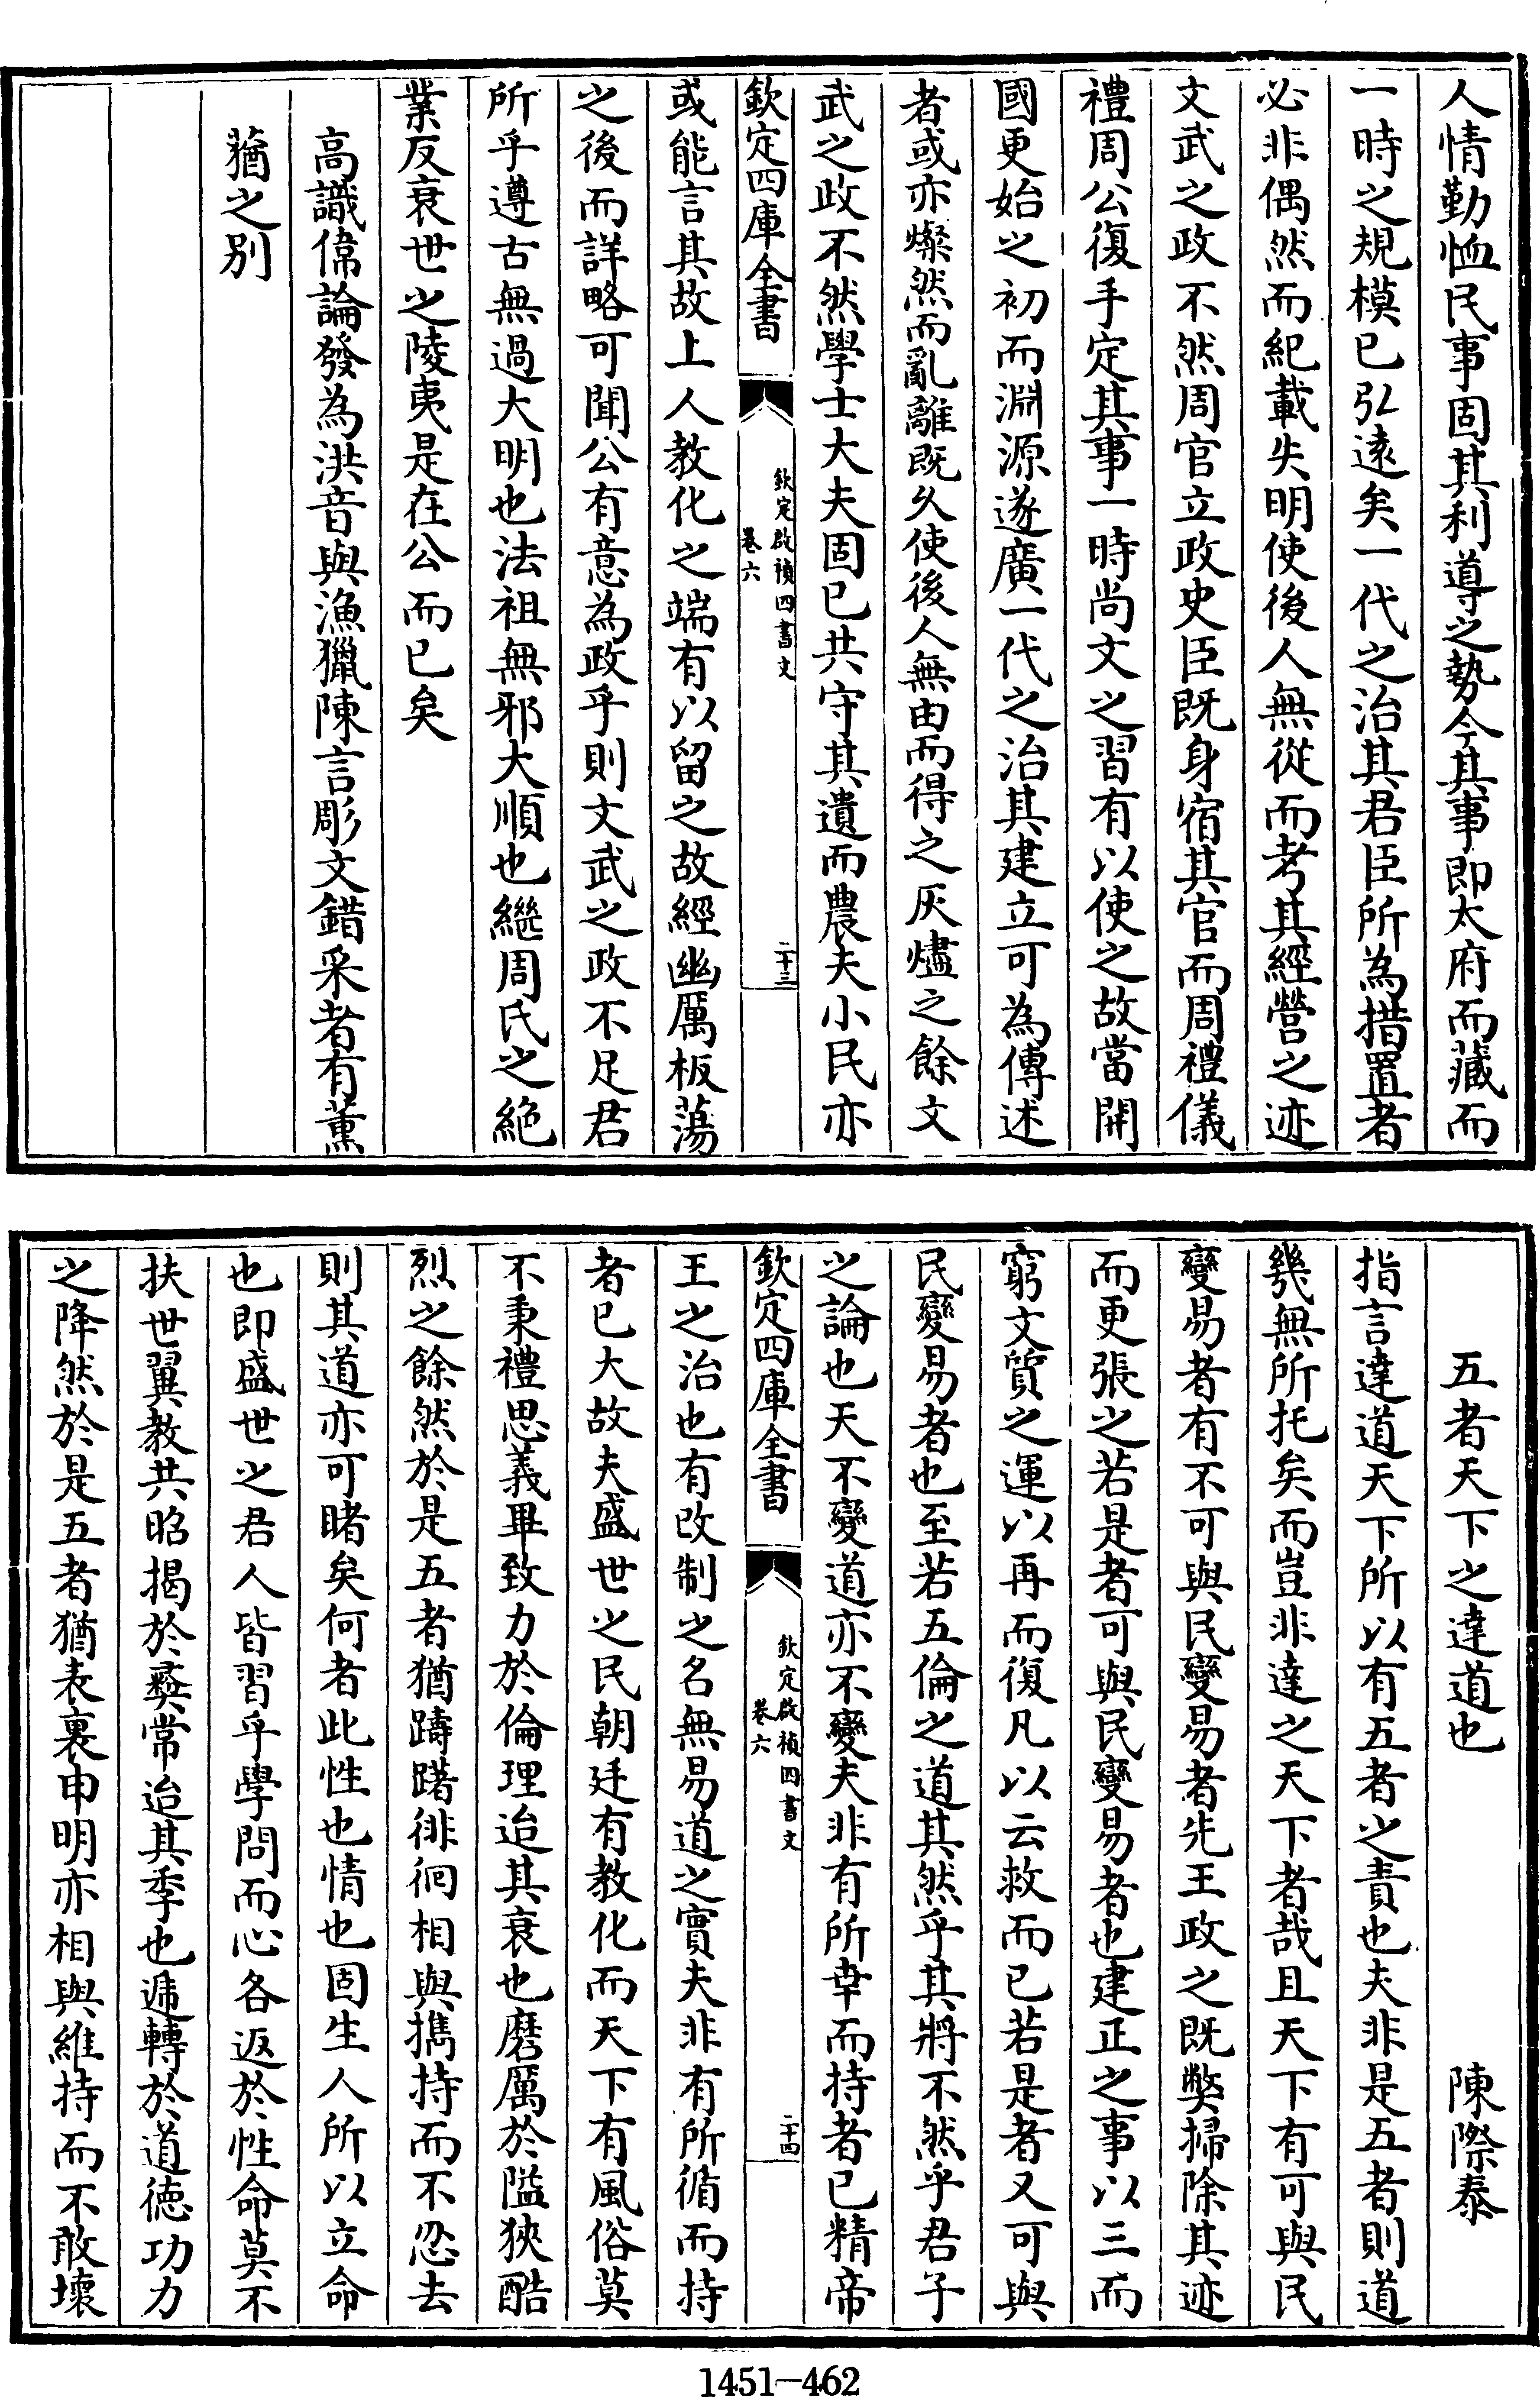 人情勤恤民事固其利導之勢今其事即太府而藏而
一時之規模已弘遠矣一代之治其君臣所為措置者
必非偶然而紀載失明使後人無從而考其經營之迹
文武之政不然周官立政史臣既身宿其官而周禮儀
禮周公復手定其事一時尚文之習有以使之故當開
國更始之初而淵源遂廣一代之治其建立可為傳述
者或亦燦然而亂離既久使後人無由而得之灰燼之餘文
武之政不然學士大夫固已共守其遺而農夫小民亦
欽定四庫全書
欽定啟禎四書文
卷六
二十三
或能言其故上人教化之端有以留之故經幽厲板蕩
之後而詳略可聞公有意為政乎則文武之政不足君
所乎遵古無過大明也法祖無邪大順也繼周氏之絶
業反衰世之陵夷是在公而已矣
高識偉論發為洪音與漁獵陳言彫文錯采者有薰
蕕之别
五者天下之達道也
陳際泰
指言達道天下所以有五者之責也夫非是五者則道
幾無所托矣而豈非達之天下者哉且天下有可與民
變易者有不可與民變易者先王政之既弊掃除其迹
而更張之若是者可與民變易者也建正之事以三而
窮文質之運以再而復凡以云救而已若是者又可與
民變易者也至若五倫之道其然乎其將不然乎君子
之論也天不變道亦不變夫非有所幸而持者已精帝
欽定四庫全書
欽定啟禎四書文
卷六
二十四
王之治也有改制之名無易道之實夫非有所循而持
者已大故夫盛世之民朝廷有教化而天下有風俗莫
不秉禮思義畢致力於倫理迨其衰也磨厲於隘狹酷
烈之餘然於是五者猶躊躇徘徊相與攜持而不忍去
則其道亦可睹矣何者此性也情也固生人所以立命
也即盛世之君人皆習乎學問而心各返於性命莫不
扶世翼教共昭揭於彝常迨其季也遞轉於道德功力
之降然於是五者猶表裏申明亦相與維持而不敢壞
1451—462